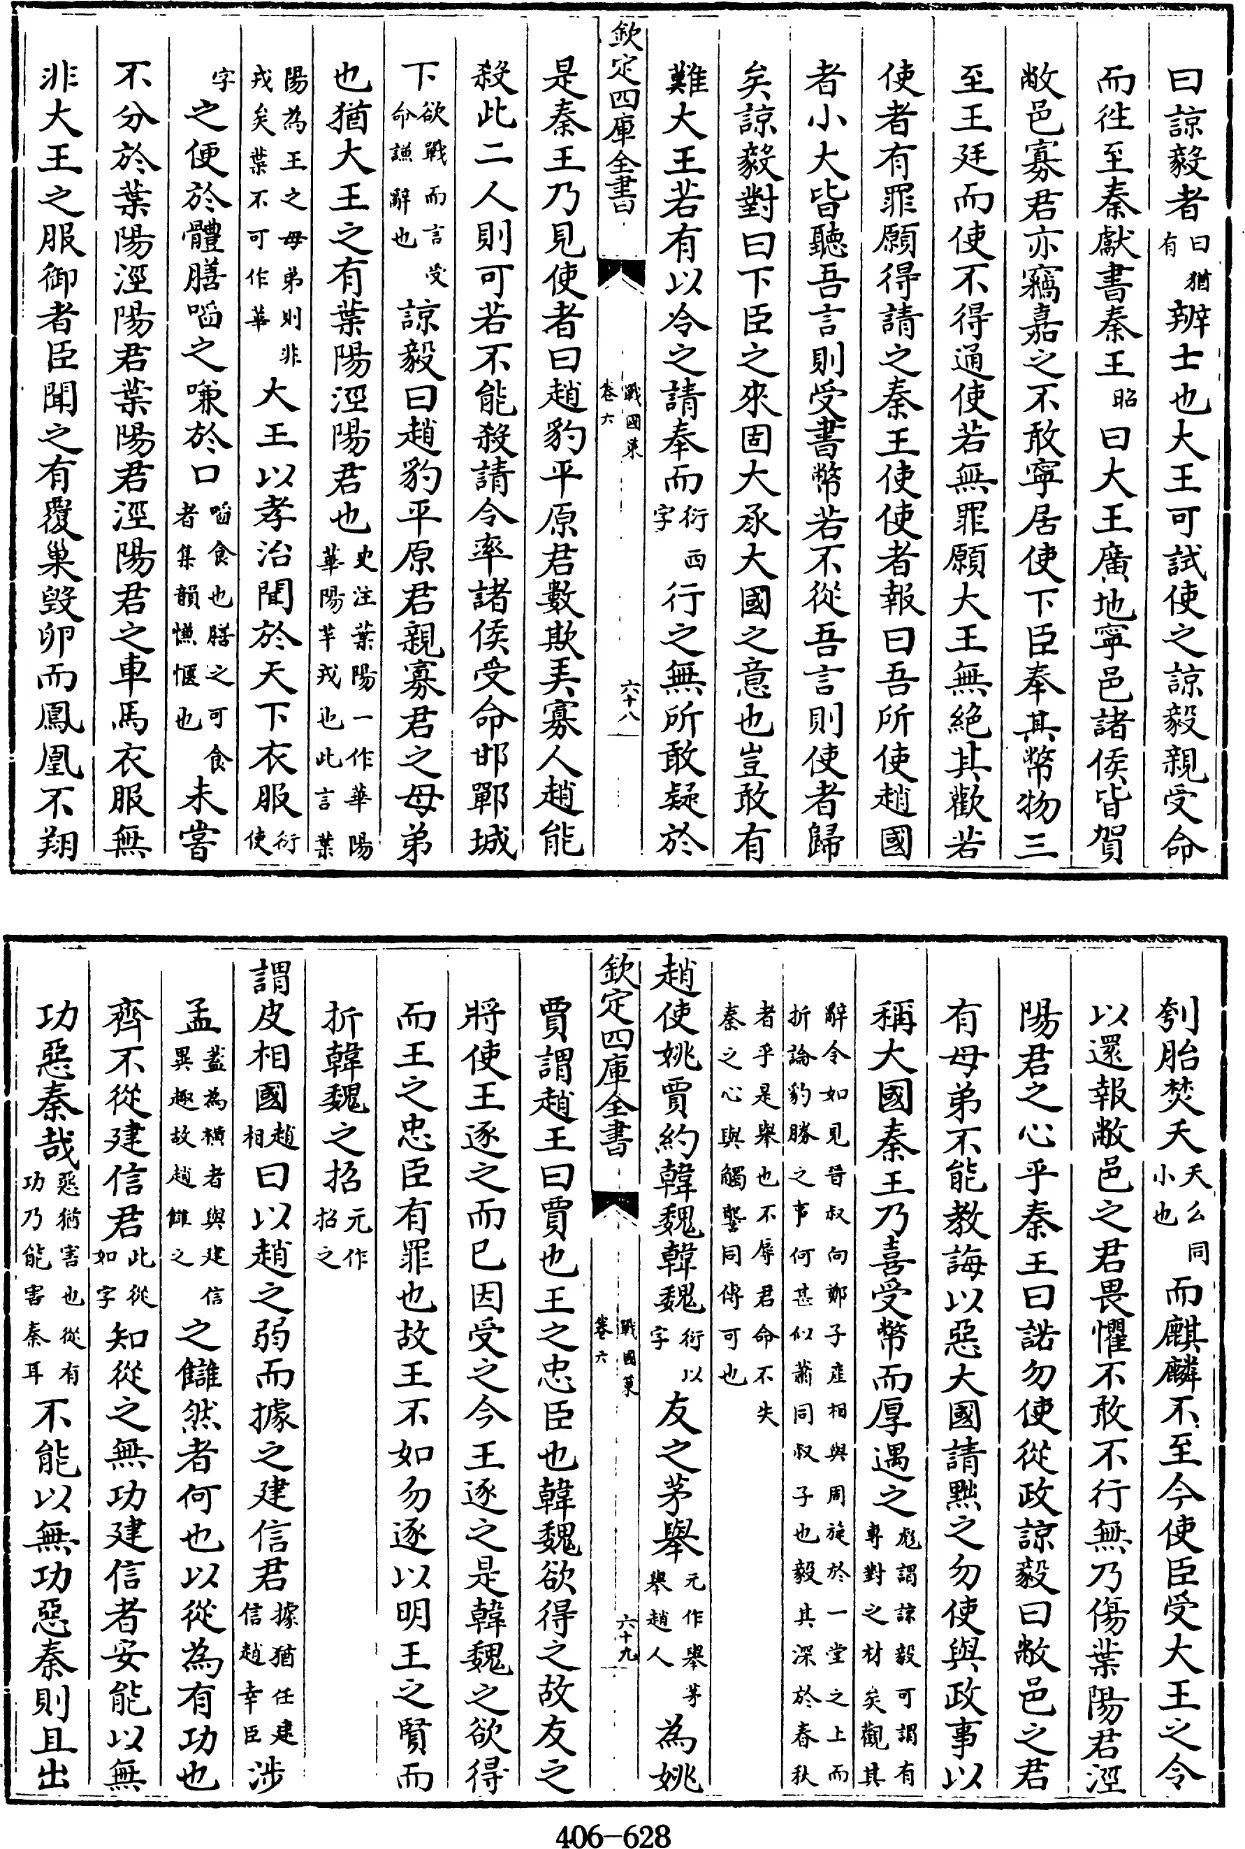 曰諒毅者曰猶有辨士也大王可試使之諒毅親受命
而徃至秦獻書秦王昭曰大王廣地寧邑諸侯皆賀
敝邑寡君亦竊嘉之不敢寧居使下臣奉其幣物三
至王廷而使不得通使若無罪願大王無絶其歡若
使者有罪願得請之秦王使使者報曰吾所使趙國
者小大皆聽吾言則受書幣若不從吾言則使者歸
矣諒毅對曰下臣之來固大承大國之意也豈敢有
難大王若有以令之請奉而衍西字行之無所敢疑於
欽定四庫全書
戰國策
卷六
六十八
是秦王乃見使者曰趙豹平原君數欺弄寡人趙能
殺此二人則可若不能殺請令率諸侯受命邯鄲城
下欲戰而言受命謙辭也諒毅曰趙豹平原君親寡君之母弟
也猶大王之有葉陽涇陽君也史注葉陽一作華陽華陽芉戎也此言葉
陽為王之母弟則非戎矣葉不可作華大王以孝治聞於天下衣服衍使
字之便於體膳啗之嗛於口啗食也膳之可食者集韻慊愜也未嘗
不分於葉陽涇陽君葉陽君涇陽君之車馬衣服無
非大王之服御者臣聞之有覆巢毀卵而鳳凰不翔
刳胎焚夭夭么同小也而麒麟不至今使臣受大王之令
以還報敝邑之君畏懼不敢不行無乃傷葉陽君涇
陽君之心乎秦王曰諾勿使從政諒毅曰敝邑之君
有母弟不能教誨以惡大國請黜之勿使與政事以
稱大國秦王乃喜受幣而厚遇之彪謂諒毅可謂有專對之材矣觀其
辭令如見晉叔向鄭子產相與周旋於一堂之上而折論豹勝之事何甚似蕭同叔子也毅其深於春秋
者乎是舉也不辱君命不失秦之心與觸讋同傳可也
趙使姚賈約韓魏韓魏衍以字友之茅舉元作舉茅舉趙人為姚
欽定四庫全書
戰國策
卷六
六十九
賈謂趙王曰賈也王之忠臣也韓魏欲得之故友之
將使王逐之而已因受之今王逐之是韓魏之欲得
而王之忠臣有罪也故王不如勿逐以明王之賢而
折韓魏之招元作招之
謂皮相國趙相曰以趙之弱而據之建信君據猶任建信趙幸臣涉
孟蓋為橫者與建信異趣故趙讎之之讎然者何也以從為有功也
齊不從建信君此從如字知從之無功建信者安能以無
功惡秦哉惡猶害也從有功乃能害秦耳不能以無功惡秦則且出
406-628